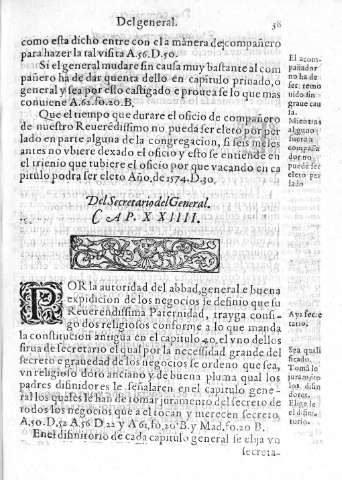 Del general. 38
como esta dicho entre con el a manera de compañero
para hazer la tal visita A.56.D.50.
Si el general mudare sin causa muy bastante al com
pañero ha de dar quenta dello en capitulo privado, o
general y sea por ello castigado e provea se lo que mas
conviene A.62.fo.20.B.
Que el tiempo que durare el oficio de compañero
de nuestro Reverēdissimo no pueda ser eleto por per
lado en parte alguna de la congregacion, si seis meses
antes no vibere dexado el oficio y esto se entiende en
el trienio que tubiere el oficio por que vacando en ca
pitulo podra ser eleto Año, de 1574.D.30.
El acom-
pañador
no ha de
ser remo
uido sin
graue cau
sa.
Mientras
alguno
fuere
compaña
dor no
puede ser
eleto per
lado
Del Secretario del General.
CAP. XXIIII.
POR la autoridad del abbad, general e buena
expidicion de los negocios se definio que su
Reuerendissima Paternidad, trayga consi-
go dos religiosos conforme a lo que manda
la constitucion antigua en el capitulo 40. el vno dellos
sirua de secretario el qual por la necessidad grande del
secreto e grauedad de los negocios se ordeno que sea,
vn religioso doto anciano y de buena pluma qual los
padres difinidores le señalaren en el capitulo gene-
ral los quales le han de tomar juramento del secreto de
todos los negocios que a el tocan y merecen secreto,
A,50.D,52 A,56 D 22 y A 61,fo,20 B. y Mad,fo.20 B.
En el difinitorio de cada capitulo general se elija vn
Aya secre
tario,
Sea quali
ficado.
Tomãle
juramẽto
los. difini
dores.
Elige le
el difini-
torio.
secreta-